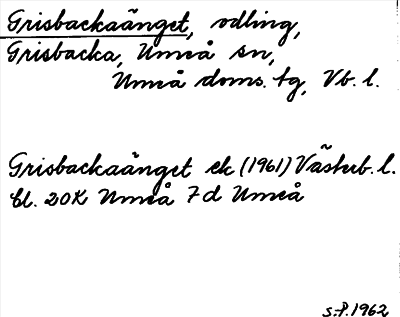 Grisbackaänget, odling,
Grisbacka, Umeå sn,
Umeå doms. tg, Vb. l.
Grisbackaänget ek (1961) Västerb. l.
bl. 20K Umeå 7d Umeå
S.P. 1962